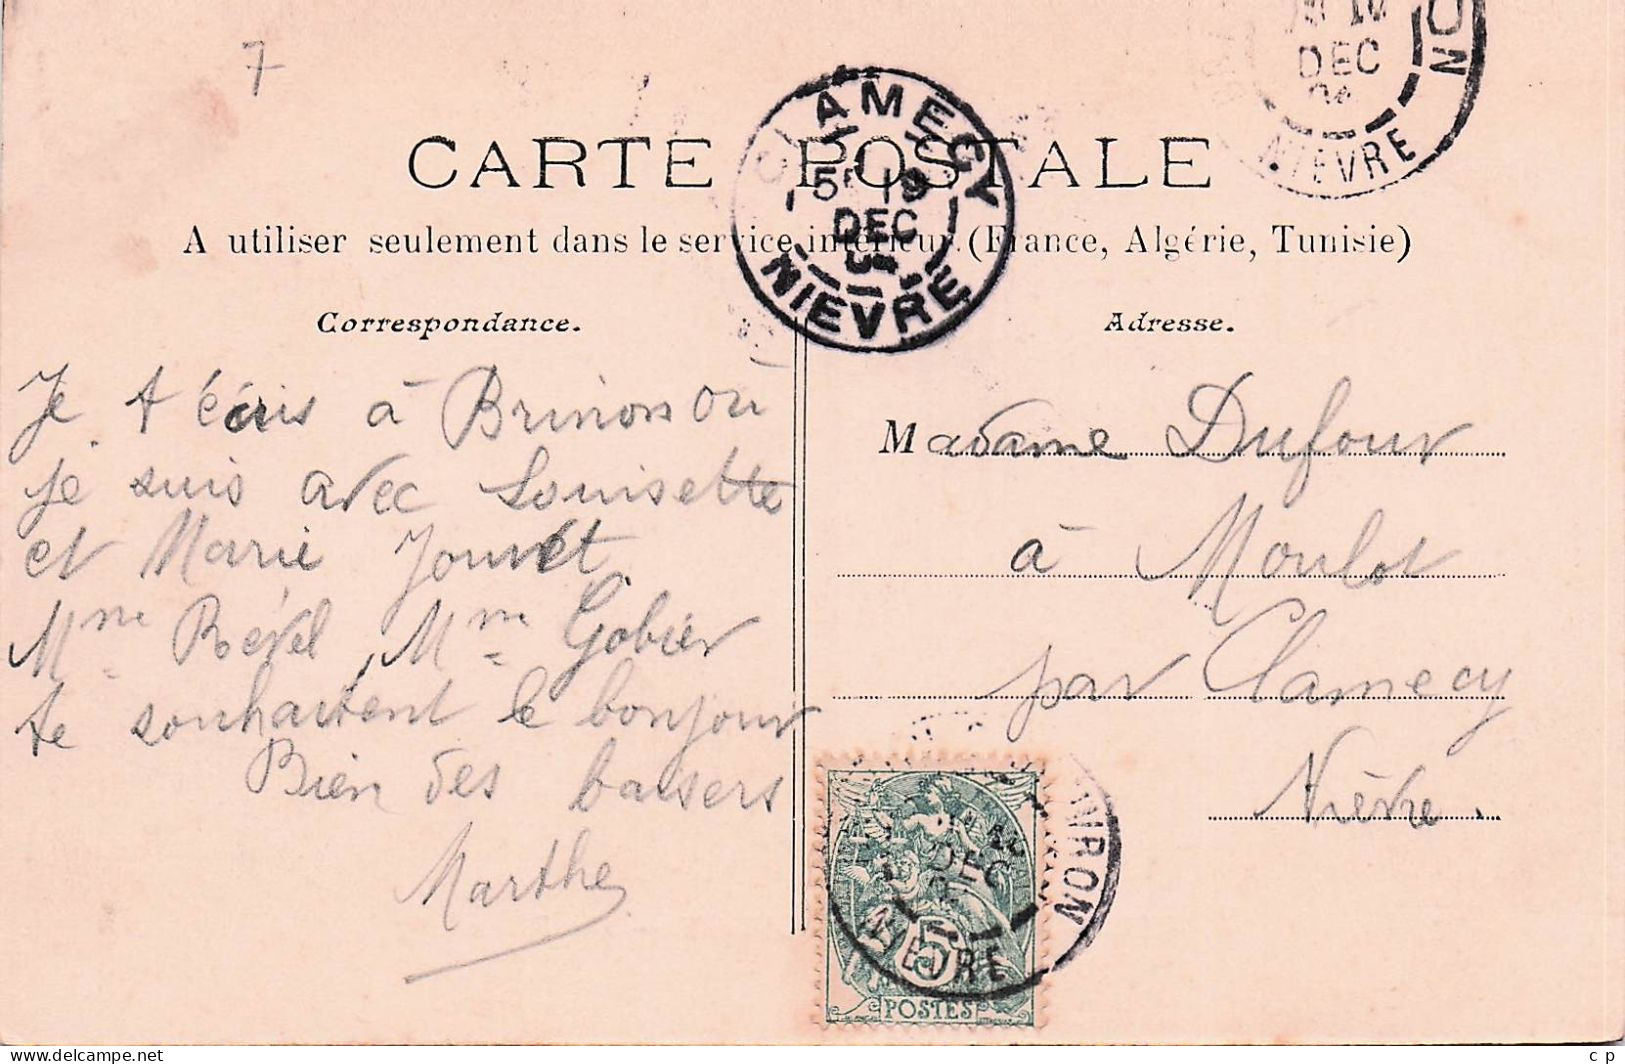 7
CARTE POSTALE
A utiliser seulement dans le service intérieur. (France, Algérie, Tunisie)
CLAMECY
5E 19
DEC
NIEVRE
DEC
NIEVRE
Correspondance.
Je t écris à Brinon où
je suis avec Louisette
et Marie Jouvet
Mme Revel, Mme Gobier
te souhaitent le bonjour
Bien des baisers
Marthe
Adresse.
Madame Dufour
à Moulot
par Clamecy
Nièvre.
DEC
NIEVRE
5
POSTES
c p